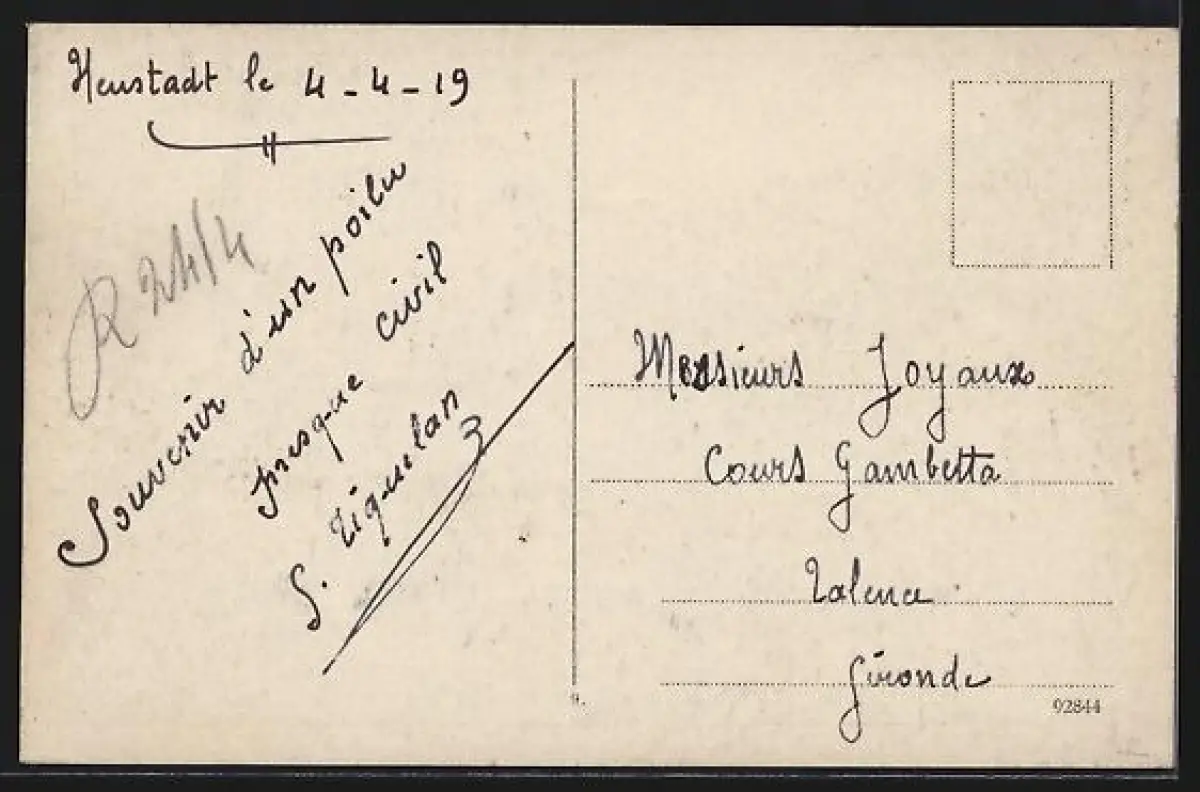 Neustadt le 4-4-19
R 24/4
Souvenir d'un poilu
presque civil
Messieurs Joyaux
Cours Gambetta
Talence
Gironde
92844